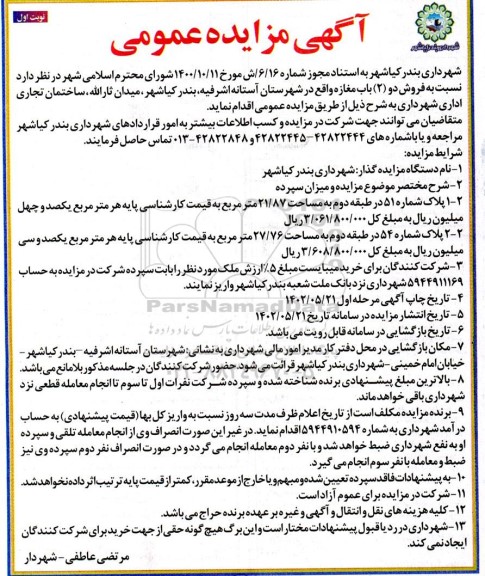 نوبت اول
آگهی مزایده عمومی
شهرداری بندر کیاشهر
شهرداری بندر کیاشهر به استناد مجوز شماره ۶/۱۶/ش مورخ ۱۴۰۰/۱۰/۱۱ شورای محترم اسلامی شهر در نظر دارد
نسبت به فروش دو (۲) باب مغازه واقع در شهرستان آستانه اشرفیه، بندر کیاشهر، میدان ثارالله، ساختمان تجاری
اداری شهرداری به شرح ذیل از طریق مزایده عمومی اقدام نماید.
متقاضیان می توانند جهت شرکت در مزایده و کسب اطلاعات بیشتر به امور قراردادهای شهرداری بندر کیاشهر
مراجعه و یا با شماره های ۴۲۸۲۲۴۴۴-۴۲۸۲۲۴۴۵ و ۴۲۸۲۲۸۴۸-۰۱۳ تماس حاصل فرمایند.
شرایط مزایده:
۱- نام دستگاه مزایده گذار: شهرداری بندر کیاشهر
۲- شرح مختصر موضوع مزایده و میزان سپرده
۲-۱ پلاک شماره ۵۱ در طبقه دوم به مساحت ۲۱/۸۷ متر مربع به قیمت کارشناسی پایه هر متر مربع یکصد و چهل
میلیون ریال به مبلغ کل ۳/۰۶۱/۸۰۰/۰۰۰ ریال
۲-۲ پلاک شماره ۵۴ در طبقه دوم به مساحت ۲۷/۷۶ متر مربع به قیمت کارشناسی پایه هر متر مربع یکصد و سی
میلیون ریال به مبلغ کل ۳/۶۰۸/۸۰۰/۰۰۰ ریال
۳- شرکت کنندگان برای خرید میبایست مبلغ ۵٪ ارزش ملک مورد نظر را بابت سپرده شرکت در مزایده به حساب
۵۹۴۴۹۱۱۱۶۹ شهرداری نزد بانک ملت شعبه بندر کیاشهر واریز نمایند.
۴- تاریخ چاپ آگهی مرحله اول ۱۴۰۲/۰۵/۲۱
۵- تاریخ انتشار مزایده در سامانه تاریخ ۱۴۰۲/۰۵/۲۱
۶- تاریخ بازگشایی در سامانه قابل رویت می باشد.
۷- مکان بازگشایی در محل دفتر کار مدیر امور مالی شهرداری به نشانی: شهرستان آستانه اشرفیه - بندر کیاشهر -
خیابان امام خمینی - شهرداری بندر کیاشهر قرائت می شود حضور شرکت کنندگان در جلسه مذکور بلامانع می باشد.
۸- بالاترین مبلغ پیشنهادی برنده شناخته شده و سپرده شرکت نفرات اول تا سوم تا انجام معامله قطعی نزد
شهرداری باقی خواهد ماند.
۹- برنده مزایده مکلف است از تاریخ اعلام ظرف مدت سه روز نسبت به واریز کل بها (قیمت پیشنهادی) به حساب
درآمد شهرداری به شماره ۵۹۴۴۹۱۰۵۹۴ اقدام نماید. در غیر این صورت انصراف وی از انجام معامله تلقی و سپرده
او به نفع شهرداری ضبط خواهد شد و با نفر دوم معامله انجام می گردد و در صورت انصراف نفر دوم سپرده وی نیز
ضبط و معامله با نفر سوم انجام می گیرد.
۱۰- به پیشنهادات فاقد سپرده تعیین شده و مبهم و یا خارج از موعد مقرر، کمتر از قیمت پایه ترتیب اثر داده نخواهد شد.
۱۱- شرکت در مزایده برای عموم آزاد است.
۱۲- کلیه هزینه های نقل و انتقال و آگهی و غیره بر عهده برنده حراج می باشد.
۱۳- شهرداری در رد یا قبول پیشنهادات مختار است و این برگ هیچ گونه حقی از جهت خرید برای شرکت کنندگان
ایجاد نمی کند.
مرتضی عاطفی - شهردار
ParsNamadData